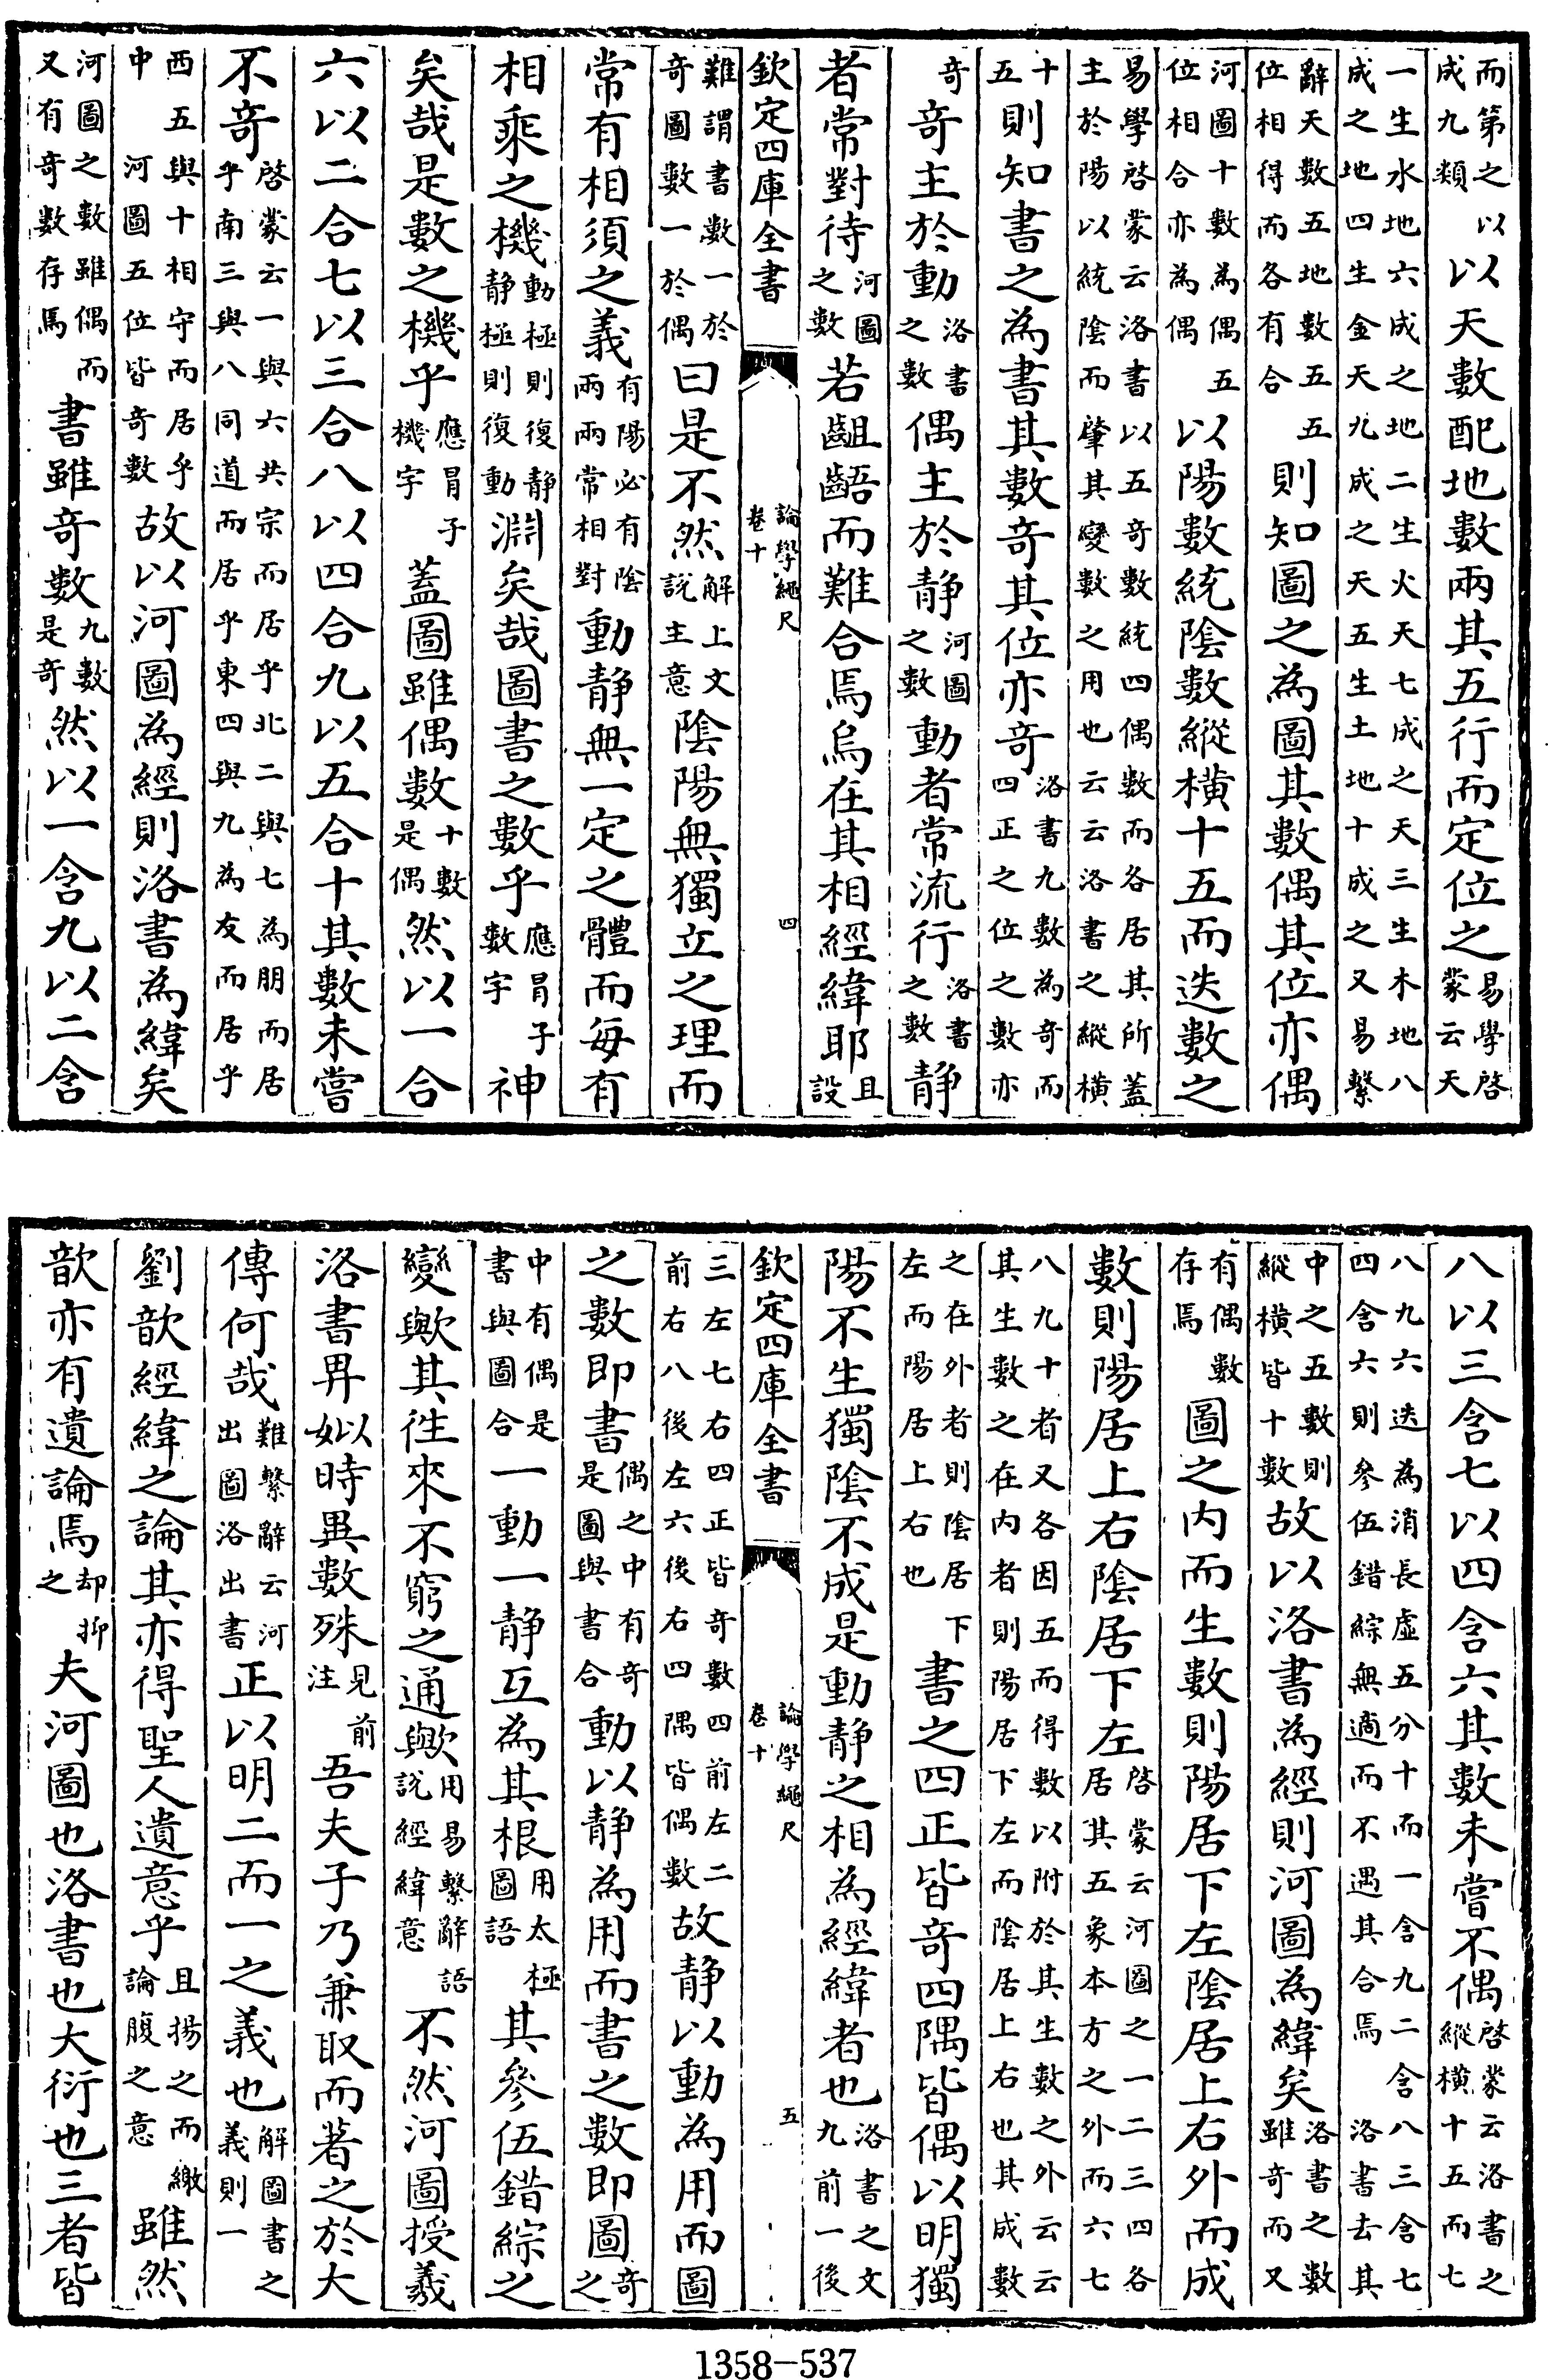 而第之以成九類以天數配地數兩其五行而定位之易學啓蒙云天
一生水地六成之地二生火天七成之天三生木地八成之地四生金天九成之天五生土地十成之又易繫
辭天數五地數五五位相得而各有合則知圖之為圖其數偶其位亦偶
河圖十數為偶五位相合亦為偶以陽數統陰數縱橫十五而迭數之
易學啓蒙云洛書以五奇數統四偶數而各居其所蓋主於陽以統陰而肇其變數之用也云云洛書之縱橫
十五則知書之為書其數奇其位亦奇洛書九數為奇而四正之位之數亦
奇奇主於動洛書之數偶主於静河圖之數動者常流行洛書之數静
者常對待河圖之數若齟齬而難合焉烏在其相經緯耶且設
欽定四庫全書 論學繩尺 卷十 四
難謂書數一於奇圖數一於偶曰是不然解上文說主意陰陽無獨立之理而
常有相須之義有陽必有陰兩兩常相對動静無一定之體而每有
相乘之機動極則復静静極則復動淵矣哉圖書之數乎應冐子數字神
矣哉是數之機乎應冐子機字蓋圖雖偶數十數是偶然以一合
六以二合七以三合八以四合九以五合十其數未嘗
不奇啓蒙云一與六共宗而居乎北二與七為朋而居乎南三與八同道而居乎東四與九為友而居乎
西五與十相守而居乎中河圖五位皆奇數故以河圖為經則洛書為緯矣
河圖之數雖偶而又有奇數存焉書雖奇數九數是奇然以一含九以二含
八以三含七以四含六其數未嘗不偶啓蒙云洛書之縱橫十五而七
八九六迭為消長虛五分十而一含九二含八三含七四含六則參伍錯綜無適而不遇其合焉洛書去其
中之五數則縱橫皆十數故以洛書為經則河圖為緯矣洛書之數雖奇而又
有偶數存焉圖之内而生數則陽居下左陰居上右外而成
數則陽居上右陰居下左啓蒙云河圖之一二三四各居其五象本方之外而六七
八九十者又各因五而得數以附於其生數之外云云其生數之在内者則陽居下左而陰居上右也其成數
之在外者則陰居下左而陽居上右也書之四正皆奇四隅皆偶以明獨
陽不生獨陰不成是動静之相為經緯者也洛書之文九前一後
欽定四庫全書 論學繩尺 卷十 五
三左七右四正皆奇數四前左二前右八後左六後右四隅皆偶數故静以動為用而圖
之數即書偶之中有奇是圖與書合動以静為用而書之數即圖奇之
中有偶是書與圖合一動一静互為其根用太極圖語其參伍錯綜之
變歟其徃來不窮之通歟用易繫辭語說經緯意不然河圖授羲
洛書畀姒時異數殊見前注吾夫子乃兼取而著之於大
傳何哉難繫辭云河出圖洛出書正以明二而一之義也解圖書之義則一
劉歆經緯之論其亦得聖人遺意乎且揚之而繳論腹之意雖然
歆亦有遺論焉却抑之夫河圖也洛書也大衍也三者皆
1358-537